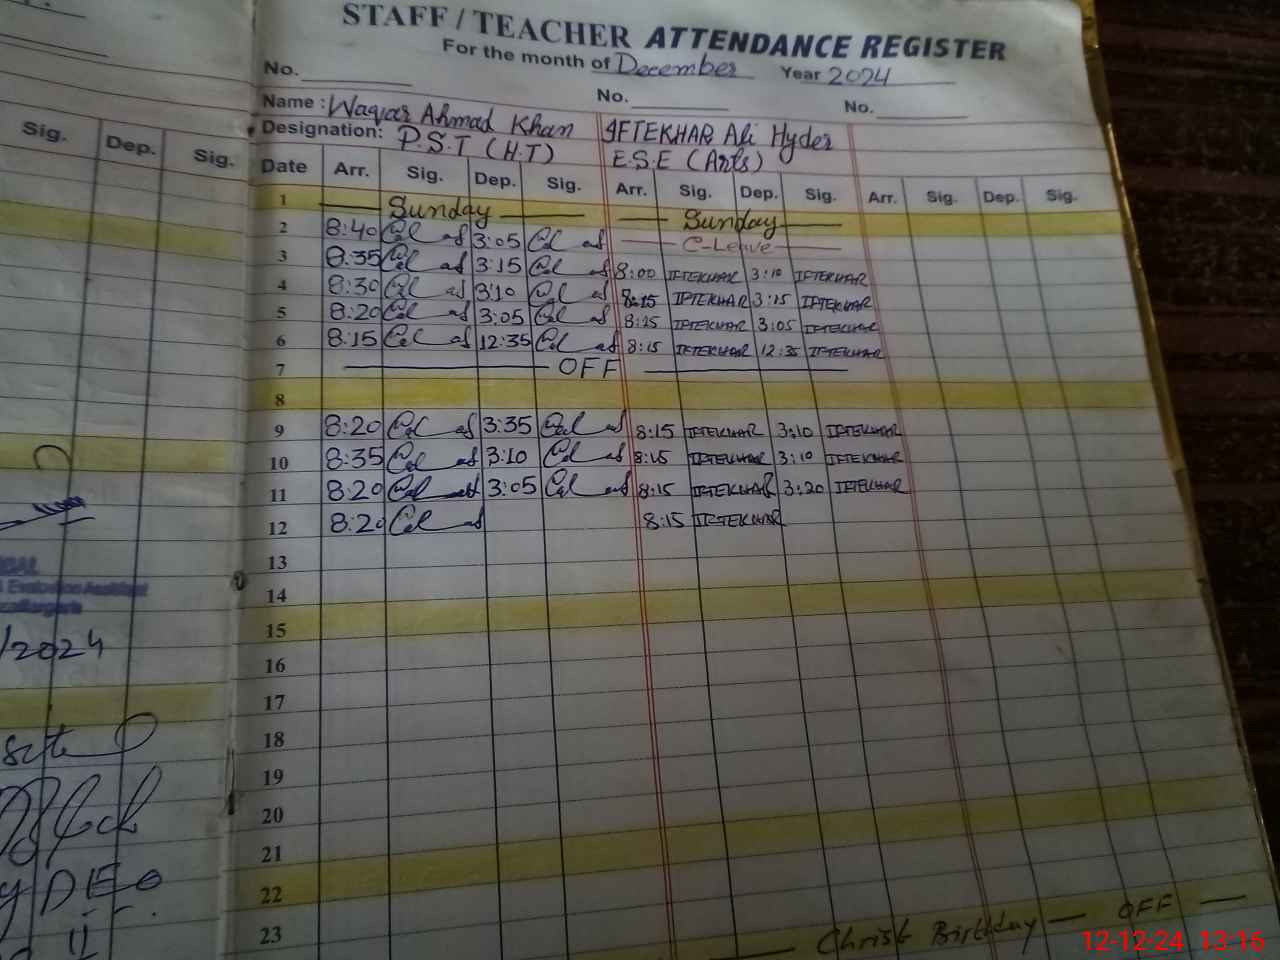 STAFF / TEACHER ATTENDANCE REGISTER
For the month of December Year 2024
No. No. No.
Name : Waqar Ahmad Khan IFTEKHAR Ali Hyder
Designation: P.S.T (H.T) E.S.E (Arts)
Sig. Dep. Sig.
Date Arr. Sig. Dep. Sig. Arr. Sig. Dep. Sig. Arr. Sig. Dep. Sig.
1 Sunday Sunday
2 8:40 3:05 C-Leave
3 8:35 3:15 8:00 IFTEKHAR 3:10 IFTEKHAR
4 8:30 3:10 8:15 IFTEKHAR 3:15 IFTEKHAR
5 8:20 3:05 8:15 IFTEKHAR 3:05 IFTEKHAR
6 8:15 12:35 8:15 IFTEKHAR 12:35 IFTEKHAR
7 OFF
8
9 8:20 3:35 8:15 IFTEKHAR 3:10 IFTEKHAR
10 8:35 3:10 8:15 IFTEKHAR 3:10 IFTEKHAR
11 8:20 3:05 8:15 IFTEKHAR 3:20 IFTEKHAR
12 8:20 8:15 IFTEKHAR
13
14
15
16
17
18
19
20
21
22
23
Christ Birthday OFF
Evaluation Assistant
/2024
DEO
12-12-24 13:16